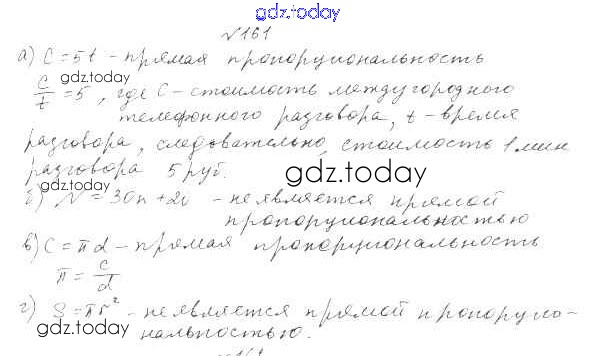 gdz.today
№161
а) C = 5t - прямая пропорциональность
C/t = 5, где C - стоимость междугородного
gdz.today
телефонного разговора, t - время
разговора, следовательно, стоимость 1 мин
разговора 5 руб.
gdz.today
gdz.today
б) N = 30n + 20 - не является прямой
пропорциональностью
в) C = πd - прямая пропорциональность
π = C/d
г) S = πr² - не является прямой пропорцио-
gdz.today
нальностью.